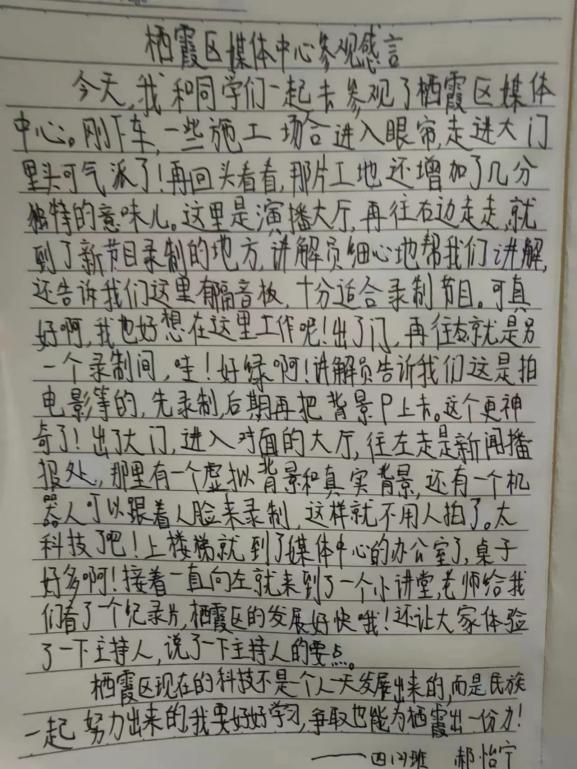 栖霞区媒体中心参观感言
今天,我和同学们一起去参观了栖霞区媒体
中心。刚下车,一些施工场合进入眼帘,走进大门
里头可气派了!再回头看看,那片工地还增加了几分
独特的意味儿。这里是演播大厅,再往右边走走,就
到了新节目录制的地方,讲解员细心地帮我们讲解,
还告诉我们这里有隔音板,十分适合录制节目。可真
好啊,我也好想在这里工作呢!出了门,再往右就是另
一个录制间,哇!好绿啊!讲解员告诉我们这是拍
电影等的,先录制,后期再把背景P上去。这个更神
奇了!出了大门,进入对面的大厅,往左走是新闻播
报处,那里有一个虚拟背景和真实背景,还有一个机
器人可以跟着人脸来录制,这样就不用人拍了。太
科技了吧!上楼梯就到了媒体中心的办公室了,桌子
好多啊!接着一直向左就来到了一个小讲堂,老师给我
们看了一个纪录片,栖霞区的发展好快哦!还让大家体验
了一下主持人,说了一下主持人的要点。
栖霞区现在的科技不是个人一天发展出来的,而是民族
一起努力出来的我要好好学习,争取也能为栖霞出一份力!
——四(1)班 郝怡宁